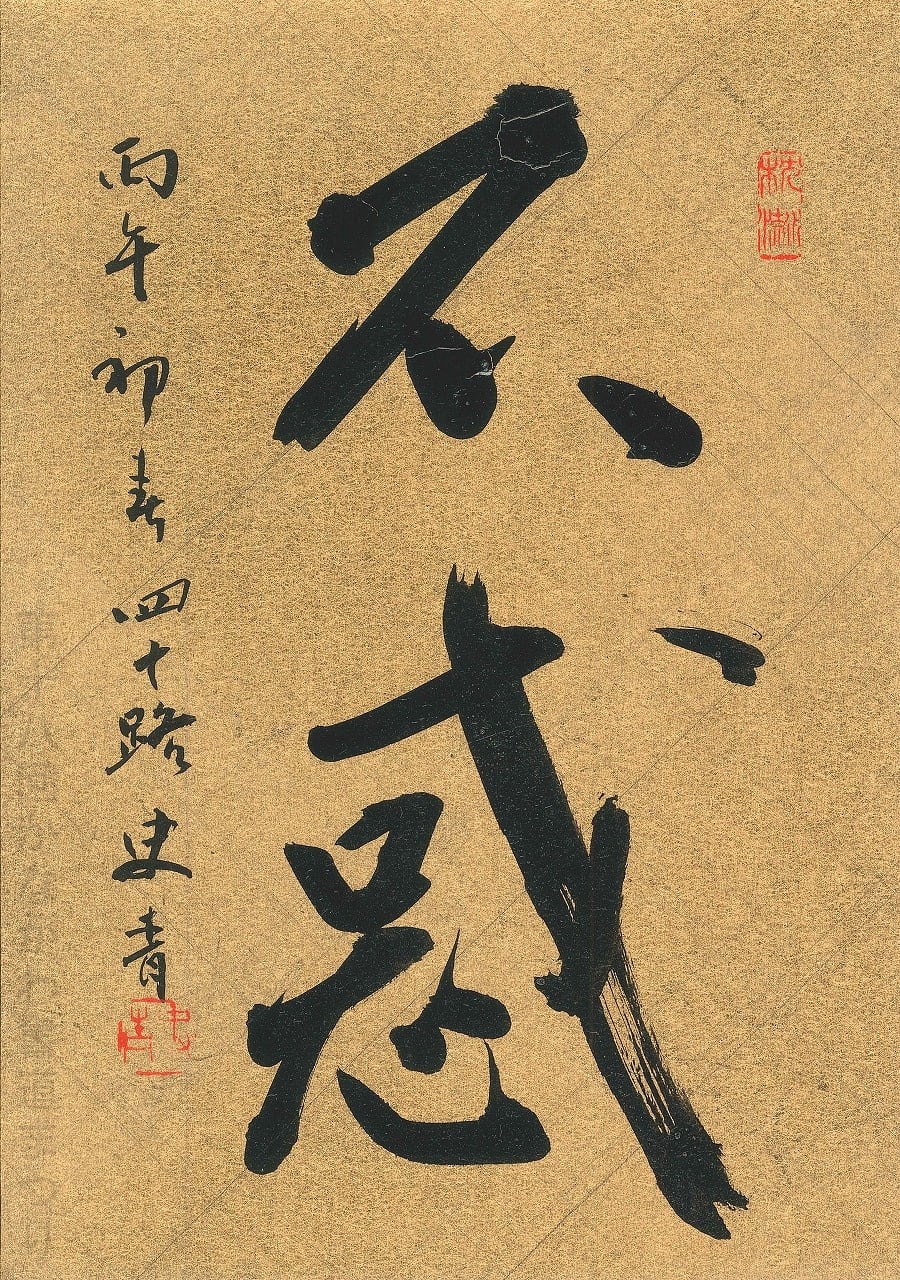 不惑
丙午初春 四十路 史青